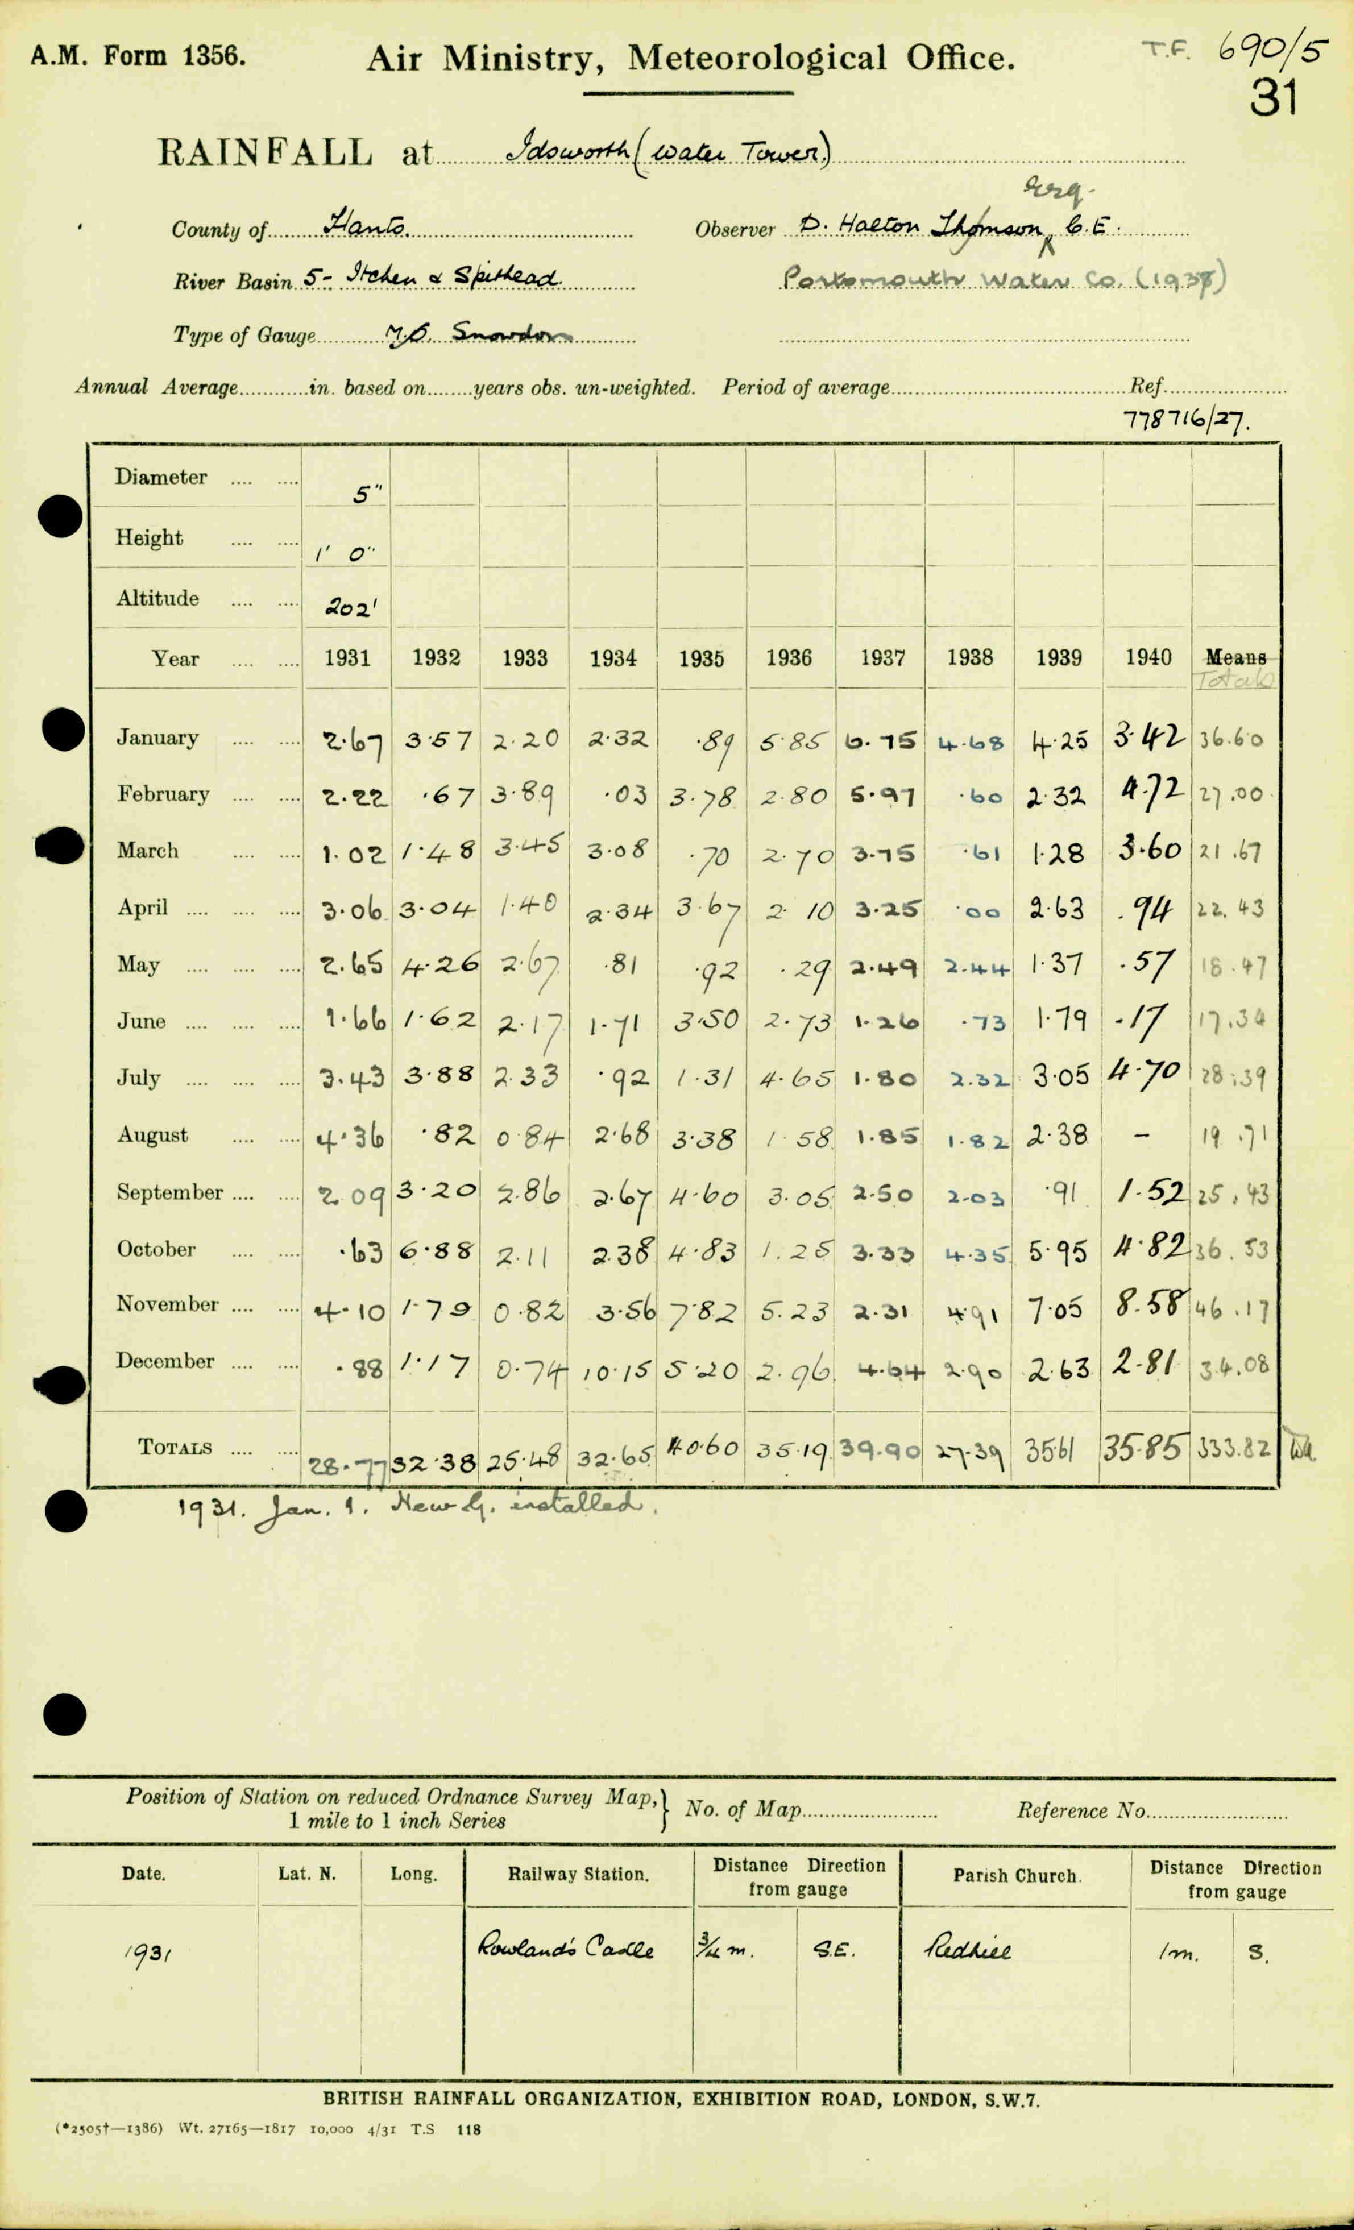 A.M. Form 1356. Air Ministry, Meteorological Office. T.F. 690/5
31
RAINFALL at Idsworth (Water Tower)
Esq.
County of Hants. Observer D. Halton Thomson, C.E.
River Basin 5- Itchen & Spithead Portsmouth Water Co. (1937)
Type of Gauge M.O. Snowdon
Annual Average in. based on years obs. un-weighted. Period of average Ref.
778716/27.
Diameter 5"
Height 1' 0"
Altitude 202'
Year 1931 1932 1933 1934 1935 1936 1937 1938 1939 1940 Means
Totals
January 2.67 3.57 2.20 2.32 .89 5.85 6.75 4.68 4.25 3.42 36.60
February 2.22 .67 3.89 .03 3.78 2.80 5.97 .60 2.32 4.72 27.00
March 1.02 1.48 3.45 3.08 .70 2.70 3.75 .61 1.28 3.60 21.67
April 3.06 3.04 1.40 2.34 3.67 2.10 3.25 .00 2.63 .94 22.43
May 2.65 4.26 2.67 .81 .92 .29 2.49 2.44 1.37 .57 18.47
June 1.66 1.62 2.17 1.71 3.50 2.73 1.26 .73 1.79 .17 17.34
July 3.43 3.88 2.33 .92 1.31 4.65 1.80 2.32 3.05 4.70 28.39
August 4.36 .82 0.84 2.68 3.38 1.58 1.85 1.82 2.38 - 19.71
September 2.09 3.20 2.86 2.67 4.60 3.05 2.50 2.03 .91 1.52 25.43
October .63 6.88 2.11 2.38 4.83 1.25 3.33 4.35 5.95 4.82 36.53
November 4.10 1.79 0.82 3.56 7.82 5.23 2.31 4.91 7.05 8.58 46.17
December .88 1.17 0.74 10.15 5.20 2.96 4.64 2.90 2.63 2.81 34.08
TOTALS 28.77 32.38 25.48 32.65 40.60 35.19 39.90 27.39 35.61 35.85 333.82
1931. Jan. 1. New G. installed.
Position of Station on reduced Ordnance Survey Map, No. of Map Reference No.
1 mile to 1 inch Series
Date. Lat. N. Long. Railway Station. Distance Direction from gauge Parish Church. Distance Direction from gauge
1931 Rowland's Castle 3/4 m. S.E. Redhill 1m. S.
BRITISH RAINFALL ORGANIZATION, EXHIBITION ROAD, LONDON, S.W.7.
(*2505†—1386) Wt. 27165—1817 10,000 4/31 T.S 118